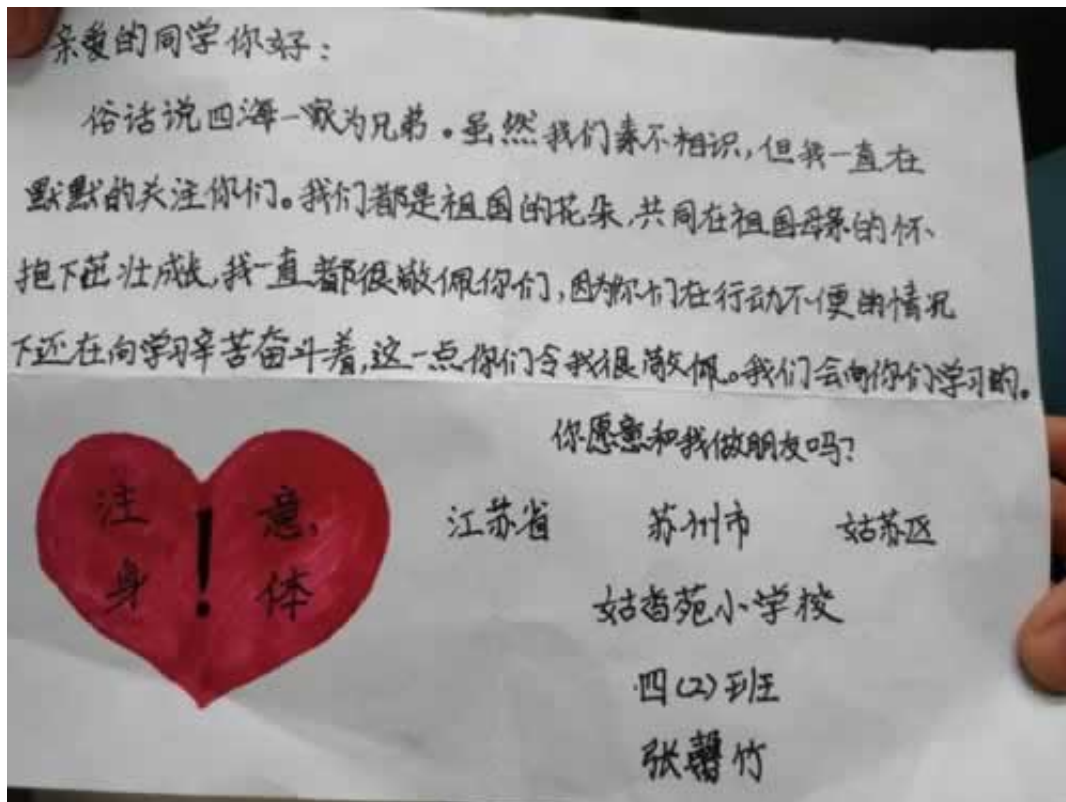 亲爱的同学你好:
俗话说四海一家为兄弟。虽然我们素不相识,但我一直在
默默的关注你们。我们都是祖国的花朵,共同在祖国母亲的怀
抱下茁壮成长,我一直都很敬佩你们,因为你们在行动不便的情况
下还在向学习辛苦奋斗着,这一点你们令我很敬佩。我们会向你们学习的。
你愿意和我做朋友吗?
江苏省 苏州市 姑苏区
姑香苑小学校
四(2)班
张馨竹
注意,
身体
!